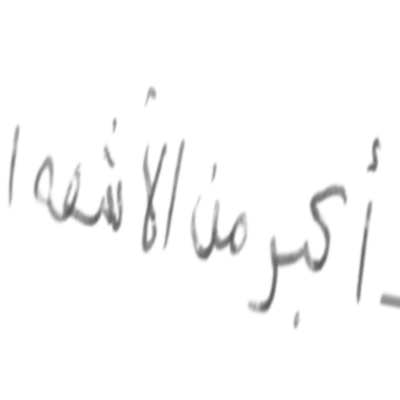 - أكبر من الأشعه ا